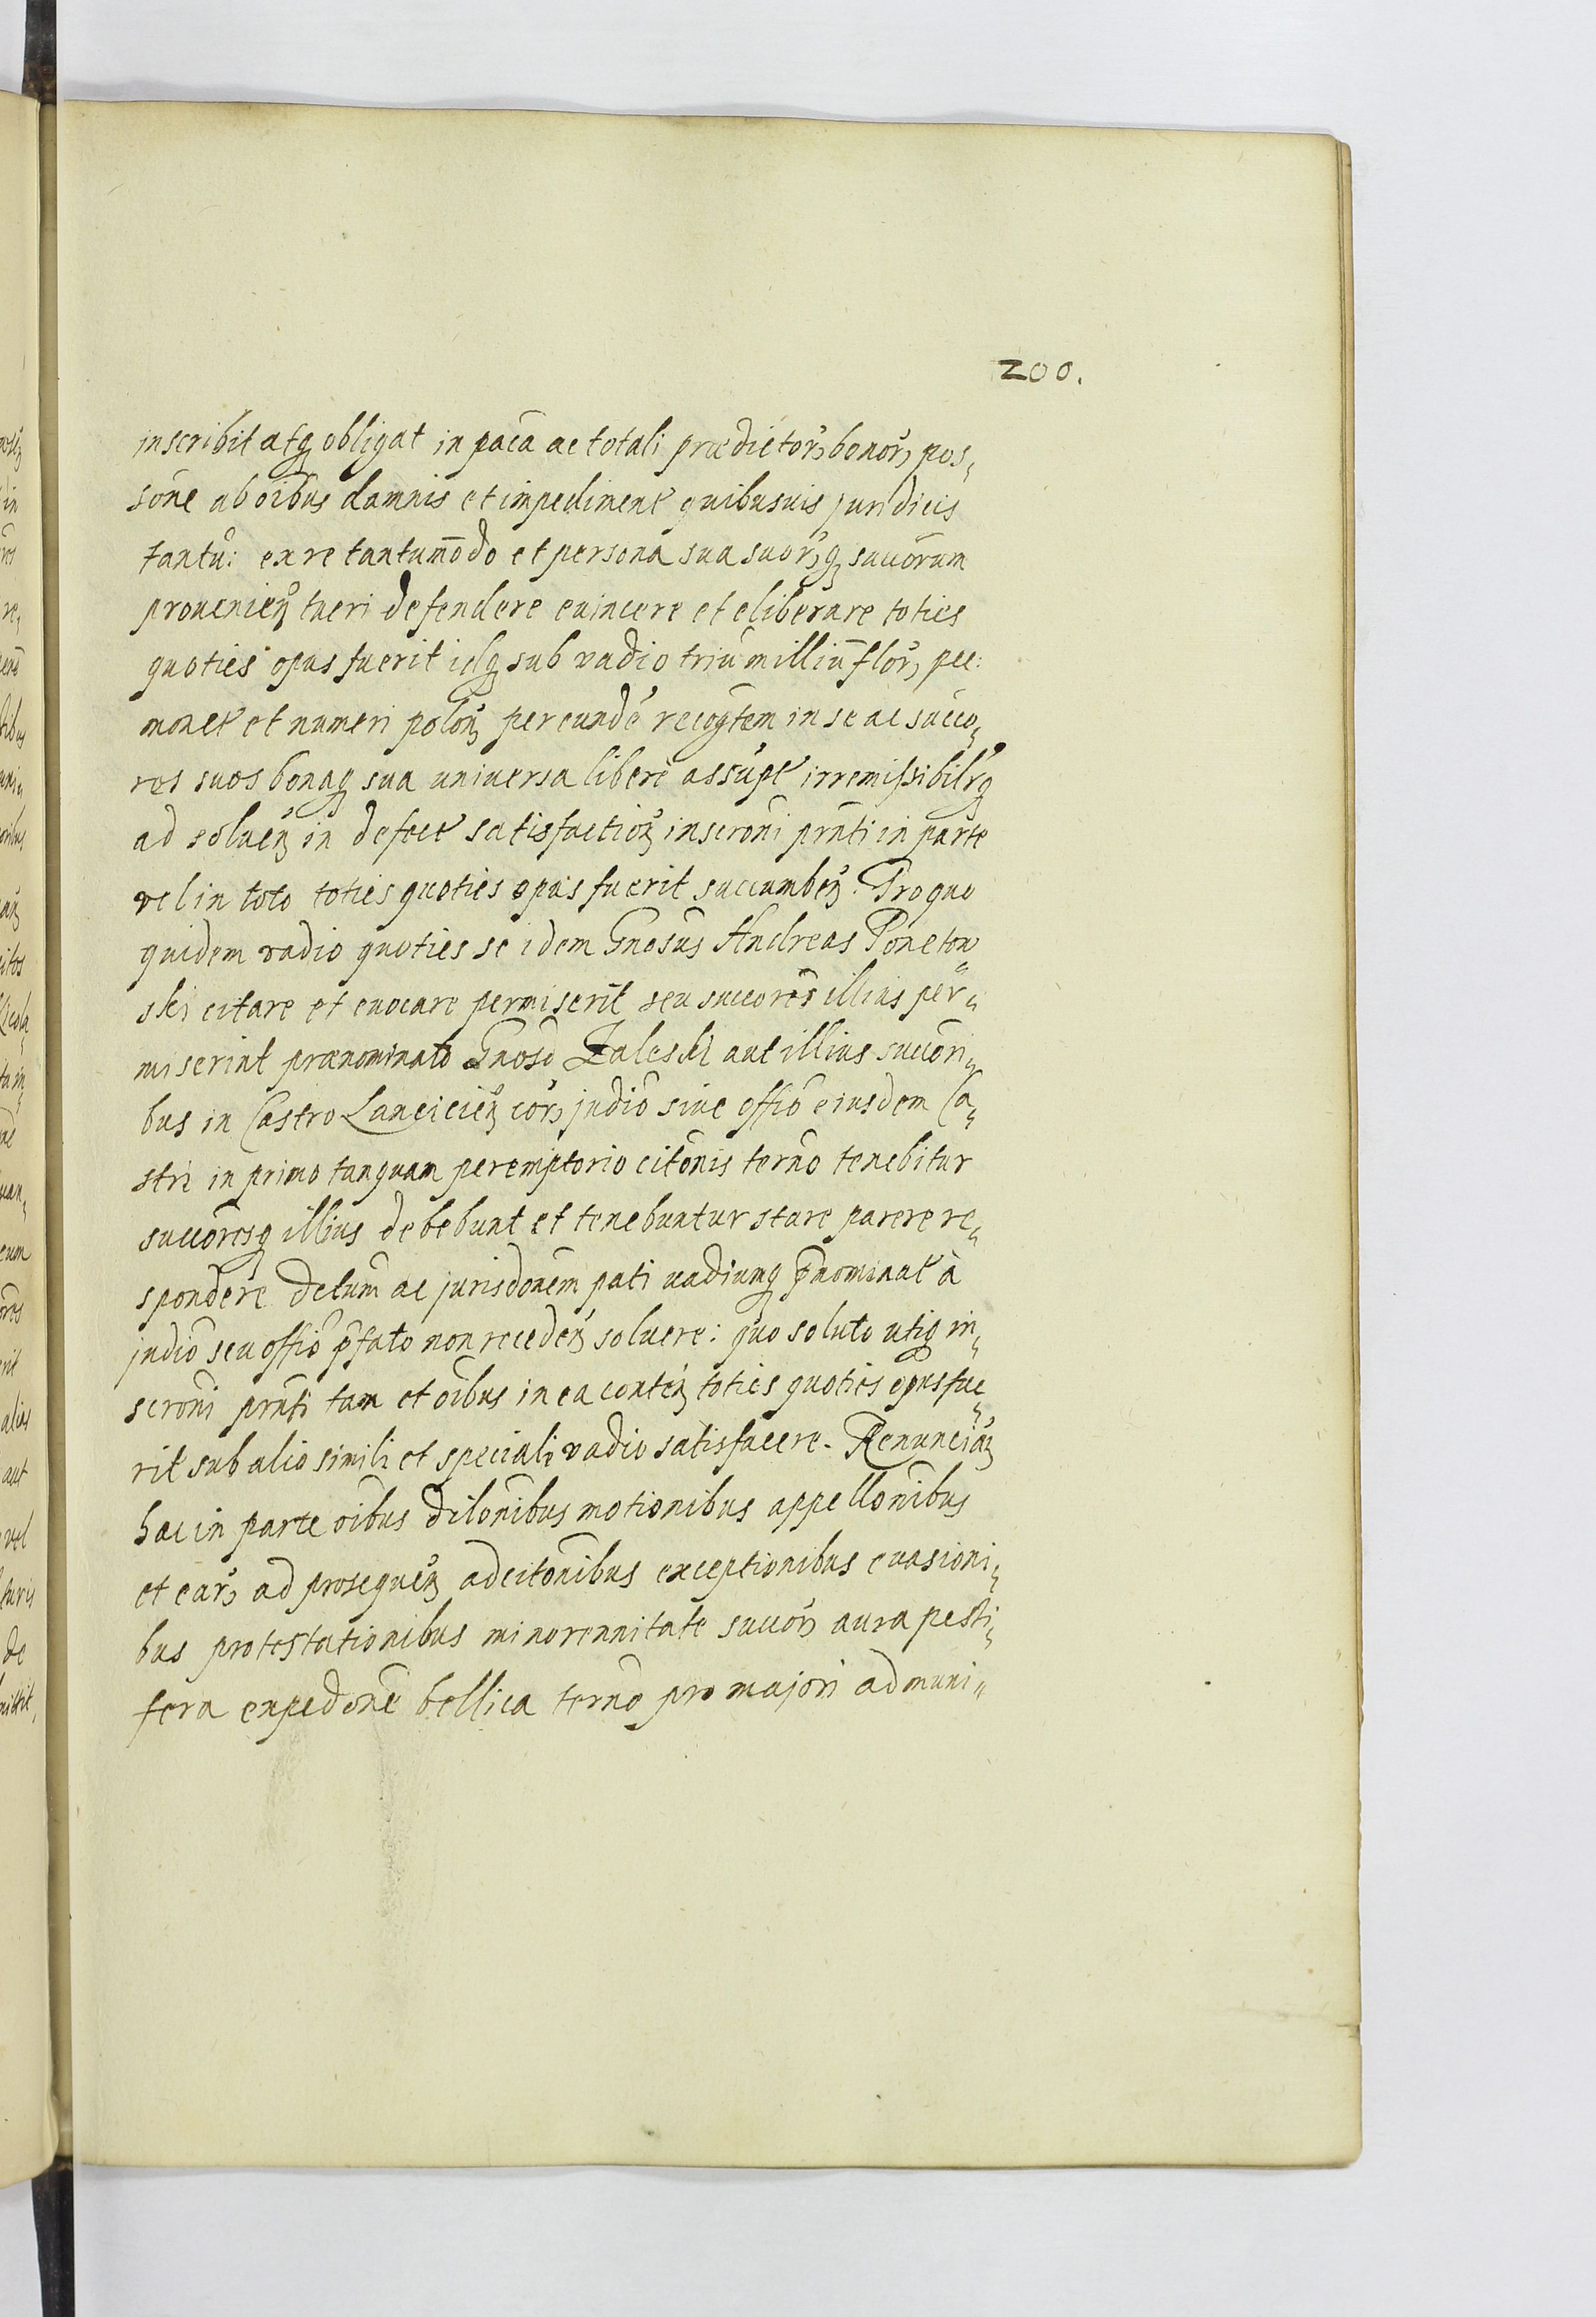 200.
inscribit atq obligat in paca ac totali prædictor bonor pos„
sone ab oibus damnis et impediment quibusuis juridicis
tantu: ex re tantumodo et persona sua suorq succorum
prouenien tueri defendere euincere et eliberare toties
quoties opus fuerit idq sub vadio triu milliu flor pec:
monet et numeri polon per eunde recogtem in se ac succo„
res suos bonaq sua uniuersa libere assupt irremissibilrq
ad soluen in defect satisfaction inscroni prnti in parte
vel in toto toties quoties opus fuerit succumben. Pro quo
quidem vadio quoties se idem Gnosus Andreas Ponetow„
ski citare et euocare permiserit seu succores illius per„
miserint prænominato Gnoso Zaleski aut illius succori„
bus in Castro Lancicien cor judio siue offio eiusdem Ca„
stri in primo tanquam peremptorio citonis terno tenebitur
succoresq illius debebunt et tenebuntur stare parere re„
spondere detum ac jurisdonem pati vadiumq pnominat à
judio seu offio pfato non receden soluere: quo soluto utiq in„
scroni prnti tam et oibus in ea conten toties quoties opus fue„
rit sub alio simili et speciali vadio satisfacere. Renuncian
hac in parte oibus dilonibus motionibus appellonibus
et ear ad prosequen adcitonibus exceptionibus euasioni„
bus protestationibus minorennitate succor aura pesti„
fera expedone bellica terno pro majori ad muni„